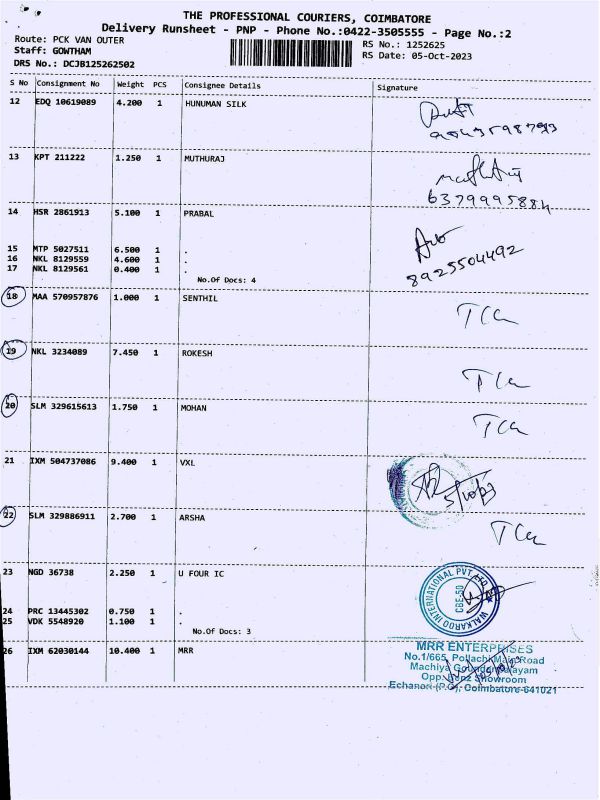 THE PROFESSIONAL COURIERS, COIMBATORE
Delivery Runsheet - PNP - Phone No.:0422-3505555 - Page No.:2
Route: PCK VAN OUTER
RS No.: 1252625
Staff: GOWTHAM
RS Date: 05-Oct-2023
DRS No.: DCJB125262502
S No Consignment No Weight PCS Consignee Details Signature
12 EDQ 10619089 4.200 1 HUNUMAN SILK
13 KPT 211222 1.250 1 MUTHURAJ
6379995884
14 HSR 2861913 5.100 1 PRABAL
15 MTP 5027511 6.500 1 .
16 NKL 8129559 4.600 1 .
17 NKL 8129561 0.400 1 .
8925504492
No.Of Docs: 4
18 MAA 570957876 1.000 1 SENTHIL
19 NKL 3234089 7.450 1 ROKESH
20 SLM 329615613 1.750 1 MOHAN
21 IXM 504737086 9.400 1 VXL
22 SLM 329886911 2.700 1 ARSHA
23 NGD 36738 2.250 1 U FOUR IC
WALKAROO INTERNATIONAL PVT. LTD.
CBE-50
24 PRC 13445302 0.750 1 .
25 VDK 5548920 1.100 1 .
No.Of Docs: 3
26 IXM 62030144 10.400 1 MRR
MRR ENTERPRISES
No.1/665, Pollachi Main Road
Machiya Goundenpalayam
Opp. Benz Showroom
Echanari (P.O), Coimbatore-641021